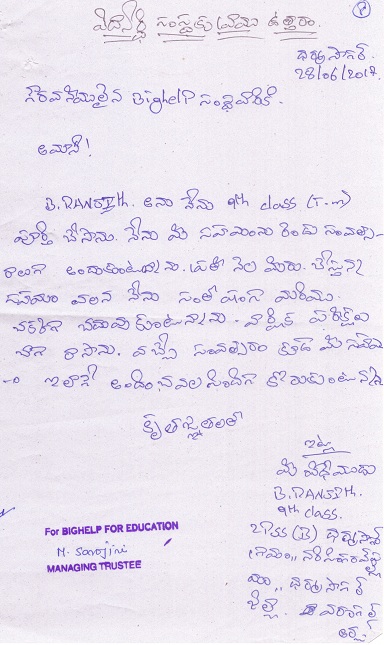 విద్యార్థి సంస్థకు వ్రాయు ఉత్తరం.
ధర్మసాగర్.
28/06/2017.
గౌరవనీయులైన Bighelp సంస్థవారికి.
B. RANJITH. అను నేను 9th class (T.m)
పూర్తి చేసాను. నేను మీ సహాయంను రెండు సంవత్స-
రాలుగా అందుకుంటున్నాను. ప్రతి నెల మీరు. చేస్తున్న
సహాయం వలన నేను సంతోషంగా మరియు
చక్కగా చదువుకుంటున్నాను. వార్షిక పరీక్షలు
బాగా రాసాను. వచ్చే సంవత్సరం కూడా మీ సహాయ
-ం ఇలాగే అందించవలసిందిగా కోరుకుంటున్నాను
కృతజ్ఞతలతో
ఇట్లు
మీ విధేయుడు
B. RANJITH.
9th class.
ZPSS (B) ధర్మసాగర్
గ్రామం,,
మం,, ధర్మసాగర్
జిల్లా. వరంగల్
For BIGHELP FOR EDUCATION
M. Sarojini
MANAGING TRUSTEE